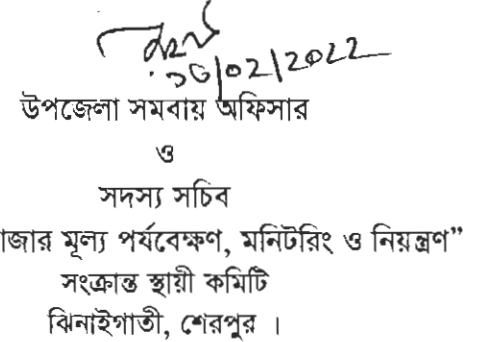 উপজেলা সমবায় অফিসার
ও
সদস্য সচিব
জার মূল্য পর্যবেক্ষণ, মনিটরিং ও নিয়ন্ত্রণ”
সংক্রান্ত স্থায়ী কমিটি
ঝিনাইগাতী, শেরপুর ।